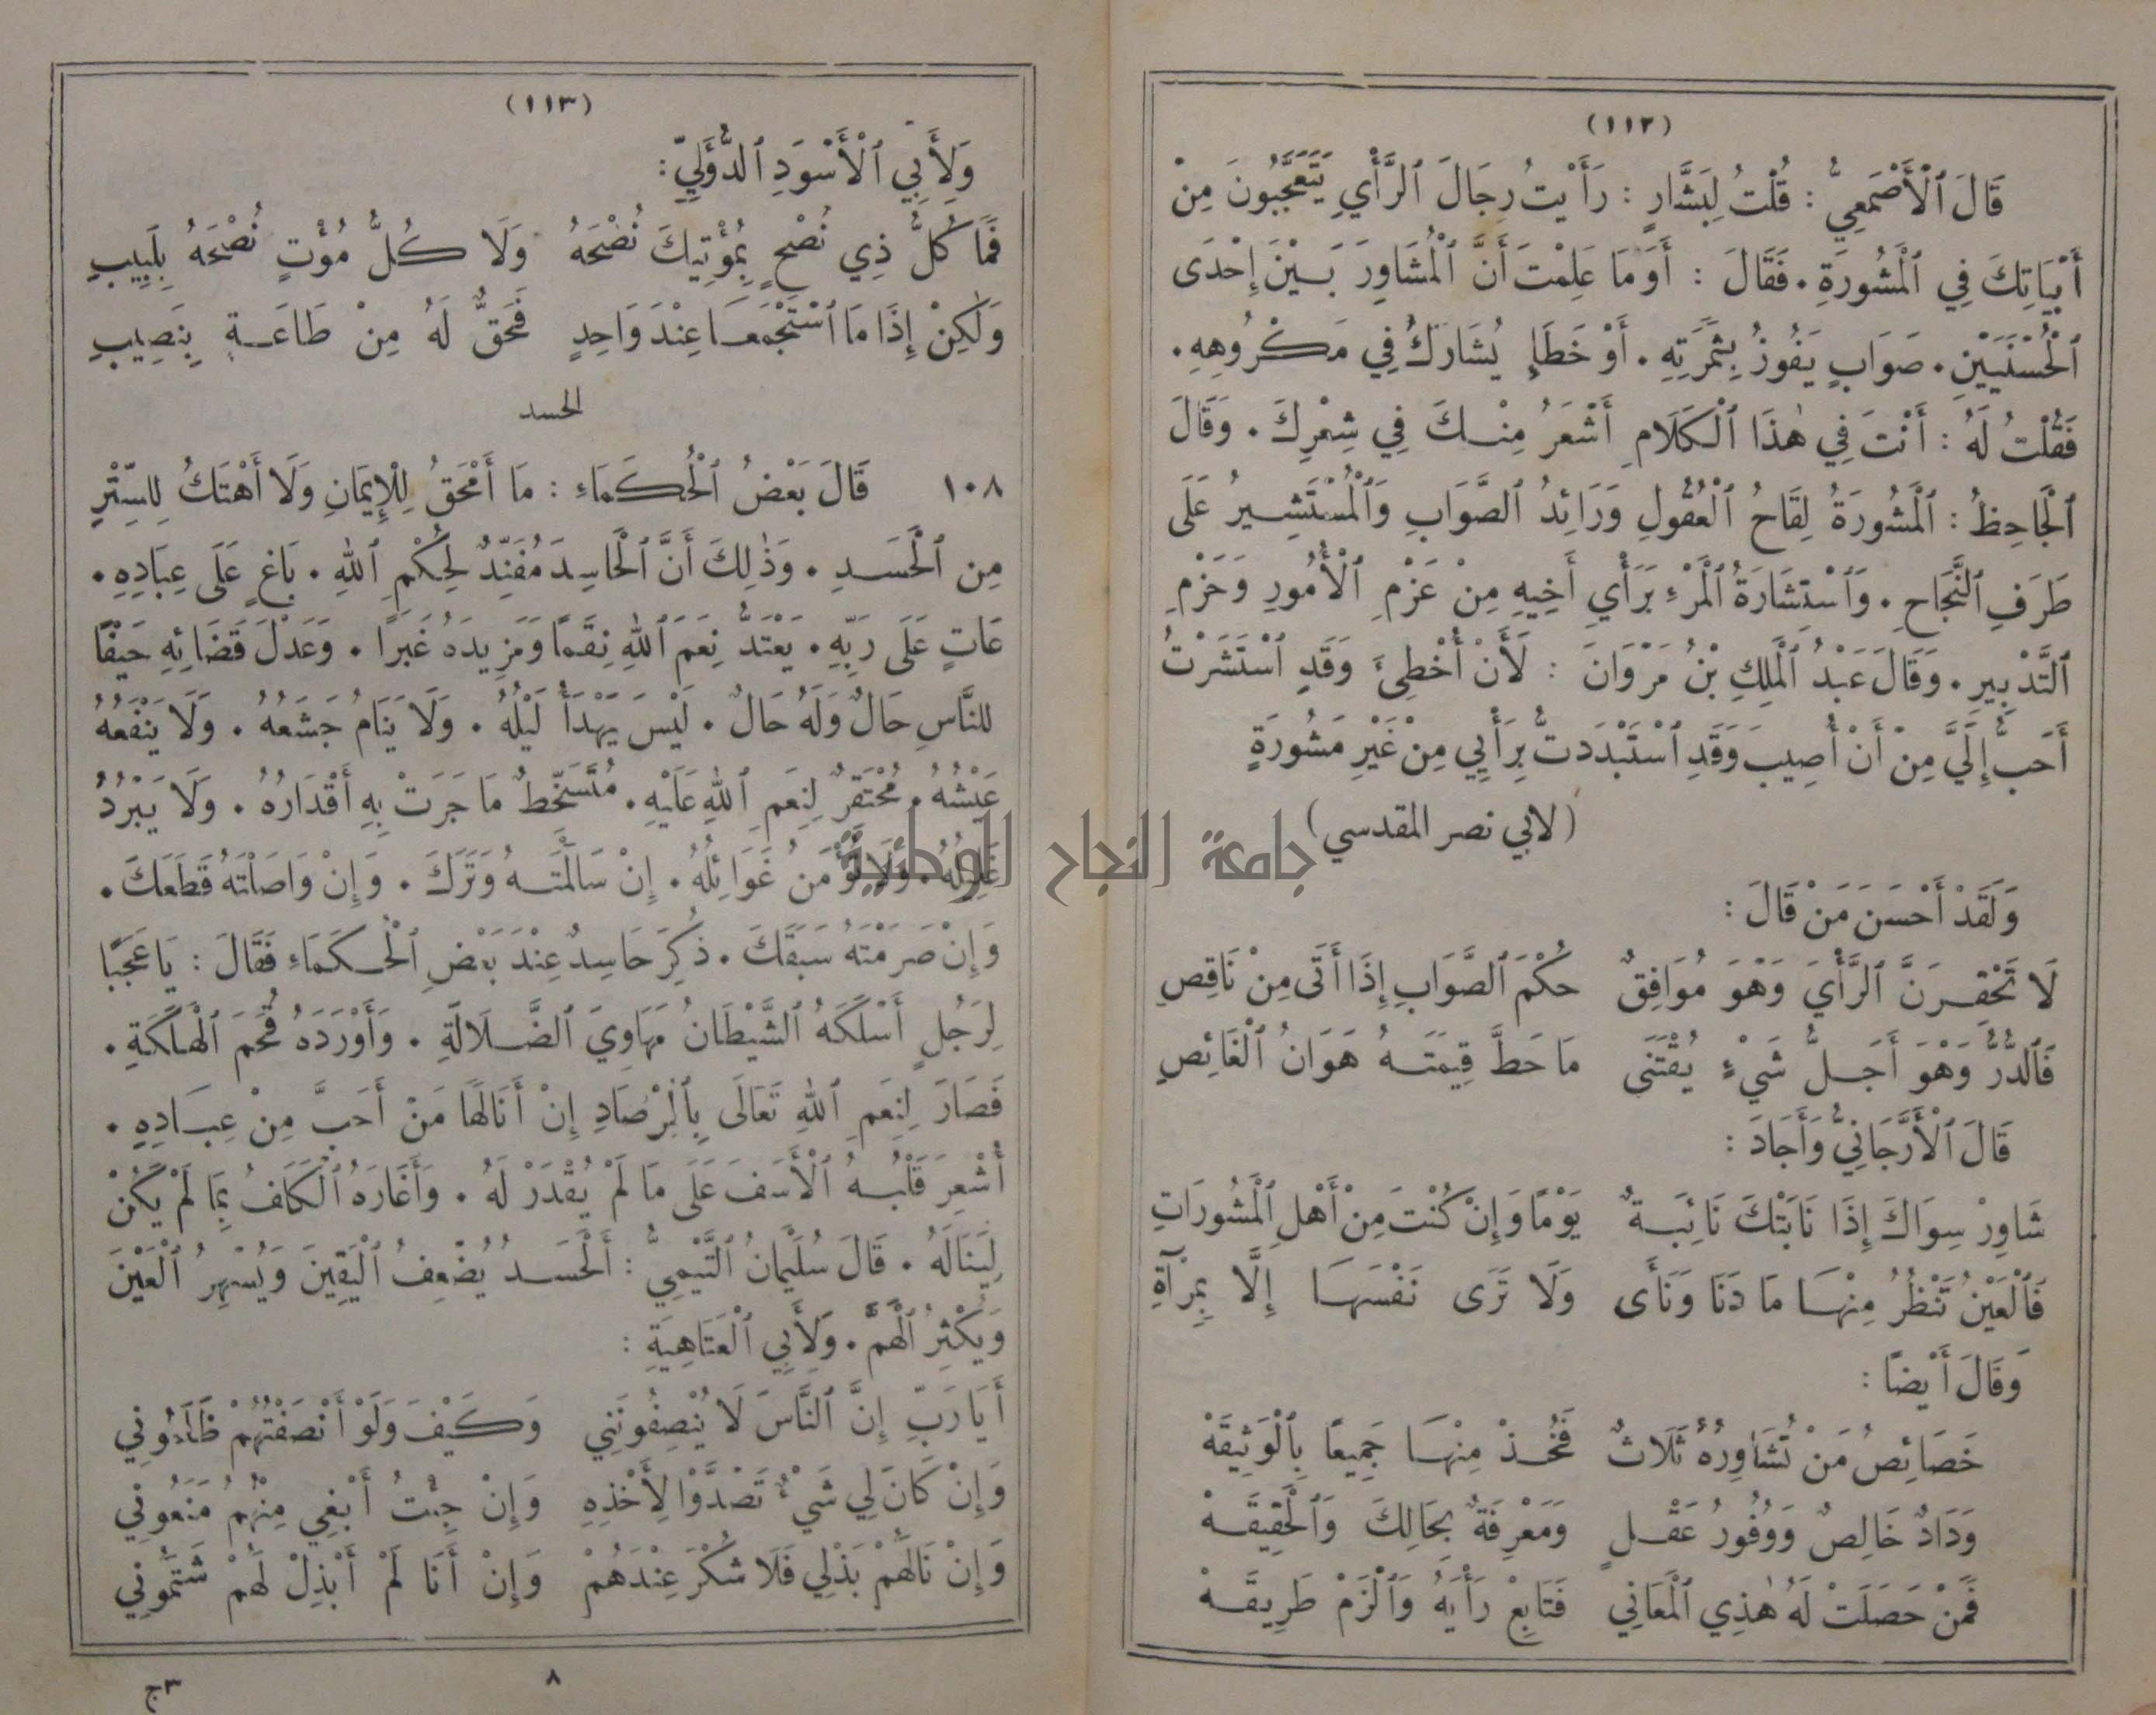 (١١٢)
قَالَ ٱلْأَصْمَعِيُّ : قُلْتُ لِبَشَّارٍ : رَأَيْتُ رِجَالَ ٱلرَّأْيِ يَتَعَجَّبُونَ مِنْ
أَبْيَاتِكَ فِي ٱلْمَشُورَةِ . فَقَالَ : أَوَمَا عَلِمْتَ أَنَّ ٱلْمُشَاوِرَ بَيْنَ إِحْدَى
ٱلْحُسْنَيَيْنِ . صَوَابٍ يَفُوزُ بِثَمَرَتِهِ . أَوْ خَطَإٍ يُشَارَكُ فِي مَكْرُوهِهِ .
فَقُلْتُ لَهُ : أَنْتَ فِي هٰذَا ٱلْكَلَامِ أَشْعَرُ مِنْكَ فِي شِعْرِكَ . وَقَالَ
ٱلْجَاحِظُ : ٱلْمَشُورَةُ لِقَاحُ ٱلْعُقُولِ وَرَائِدُ ٱلصَّوَابِ وَٱلْمُسْتَشِيرُ عَلَى
طَرَفِ ٱلنَّجَاحِ . وَٱسْتِشَارَةُ ٱلْمَرْءِ بِرَأْيِ أَخِيهِ مِنْ عَزْمِ ٱلْأُمُورِ وَحَزْمِ
ٱلتَّدْبِيرِ . وَقَالَ عَبْدُ ٱلْمَلِكِ بْنُ مَرْوَانَ : لَأَنْ أُخْطِئَ وَقَدِ ٱسْتَشَرْتُ
أَحَبُّ إِلَيَّ مِنْ أَنْ أُصِيبَ وَقَدِ ٱسْتَبْدَدتُّ بِرَأْيِي مِنْ غَيْرِ مَشُورَةٍ
(لابي نصر المقدسي)
وَلَقَدْ أَحْسَنَ مَنْ قَالَ :
لَا تَحْقِرَنَّ ٱلرَّأْيَ وَهْوَ مُوَافِقٌ حُكْمَ ٱلصَّوَابِ إِذَا أَتَى مِنْ نَاقِصِ
فَٱلدُّرُّ وَهْوَ أَجَلُّ شَيْءٍ يُقْتَنَى مَا حَطَّ قِيمَتَهُ هَوَانُ ٱلْغَائِصِ
قَالَ ٱلْأَرَّجَانِيُّ وَأَجَادَ :
شَاوِرْ سِوَاكَ إِذَا نَابَتْكَ نَائِبَةٌ يَوْمًا وَإِنْ كُنْتَ مِنْ أَهْلِ ٱلْمَشُورَاتِ
فَٱلْعَيْنُ تَنْظُرُ مِنْهَا مَا دَنَا وَنَأَى وَلَا تَرَى نَفْسَهَا إِلَّا بِمِرْآةِ
وَقَالَ أَيْضًا :
خَصَائِصُ مَنْ تُشَاوِرُهُ ثَلَاثٌ فَخُذْ مِنْهَا جَمِيعًا بِٱلْوَثِيقَهْ
وَدَادٌ خَالِصٌ وَوُفُورُ عَقْلٍ وَمَعْرِفَةٌ بِحَالِكَ وَٱلْحَقِيقَهْ
فَمَنْ حَصَلَتْ لَهُ هٰذِي ٱلْمَعَانِي فَتَابِعْ رَأْيَهُ وَٱلْزَمْ طَرِيقَهْ
(١١٣)
وَلِأَبِي ٱلْأَسْوَدِ ٱلدُّؤَلِيِّ :
فَمَا كُلُّ ذِي نُصْحٍ بِمُؤْتِيكَ نُصْحَهُ وَلَا كُلُّ مُؤْتٍ نُصْحَهُ بِلَبِيبِ
وَلٰكِنْ إِذَا مَا ٱسْتَجْمَعَا عِنْدَ وَاحِدٍ فَحَقٌّ لَهُ مِنْ طَاعَةٍ بِنَصِيبِ
الحسد
١٠٨ قَالَ بَعْضُ ٱلْحُكَمَاءِ : مَا أَمْحَقُ لِلْإِيمَانِ وَلَا أَهْتَكُ لِلسِّتْرِ
مِنَ ٱلْحَسَدِ . وَذٰلِكَ أَنَّ ٱلْحَاسِدَ مُفَنِّدٌ لِحُكْمِ ٱللهِ . بَاغٍ عَلَى عِبَادِهِ .
عَاتٍ عَلَى رَبِّهِ . يَعْتَدُّ نِعَمَ ٱللهِ نِقَمًا وَمَزِيدَهُ غَيْرًا . وَعَدْلَ قَضَائِهِ حَيْفًا
لِلنَّاسِ حَالٌ وَلَهُ حَالٌ . لَيْسَ يَهْدَأُ لَيْلُهُ . وَلَا يَنَامُ جَشَعُهُ . وَلَا يَنْفَعُهُ
عَيْشُهُ . مُحْتَقِرٌ لِنِعَمِ ٱللهِ عَلَيْهِ . مُتَسَخِّطٌ مَا جَرَتْ بِهِ أَقْدَارُهُ . وَلَا يَبْرُدُ
غَلِيلُهُ . وَلَا تُؤْمَنُ غَوَائِلُهُ . إِنْ سَالَمْتَهُ وَتَرَكَ . وَإِنْ وَاصَلْتَهُ قَطَعَكَ .
وَإِنْ صَرَمْتَهُ سَبَقَكَ . ذُكِرَ حَاسِدٌ عِنْدَ بَعْضِ ٱلْحُكَمَاءِ فَقَالَ : يَا عَجَبًا
لِرَجُلٍ أَسْلَكَهُ ٱلشَّيْطَانُ مَهَاوِيَ ٱلضَّلَالَةِ . وَأَوْرَدَهُ قُحَمَ ٱلْهَلَكَةِ .
فَصَارَ لِنِعَمِ ٱللهِ تَعَالَى بِٱلْمِرْصَادِ إِنْ أَنَالَهَا مَنْ أَحَبَّ مِنْ عِبَادِهِ .
أُشْعِرَ قَلْبُهُ ٱلْأَسَفَ عَلَى مَا لَمْ يُقْدَرْ لَهُ . وَأَغَارَهُ ٱلْكَلَفُ بِمَا لَمْ يَكُنْ
لِيَنَالَهُ . قَالَ سُلَيْمَانُ ٱلتَّيْمِيُّ : أَلْحَسَدُ يُضْعِفُ ٱلْيَقِينَ وَيُسْهِرُ ٱلْعَيْنَ
وَيُكْثِرُ ٱلْهَمَّ . وَلِأَبِي ٱلْعَتَاهِيَةِ :
أَيَا رَبِّ إِنَّ ٱلنَّاسَ لَا يُنْصِفُونَنِي وَكَيْفَ وَلَوْ أَنْصَفْتُهُمْ ظَلَمُونِي
وَإِنْ كَانَ لِي شَيْءٌ تَصَدَّوْا لِأَخْذِهِ وَإِنْ جِئْتُ أَبْغِي مِنْهُمُ مَنَعُونِي
وَإِنْ نَالَهُمْ بَذْلِي فَلَا شُكْرَ عِنْدَهُمْ وَإِنْ أَنَا لَمْ أَبْذِلْ لَهُمْ شَتَمُونِي
٨
ج٣
جامعة النجاح الوطنية